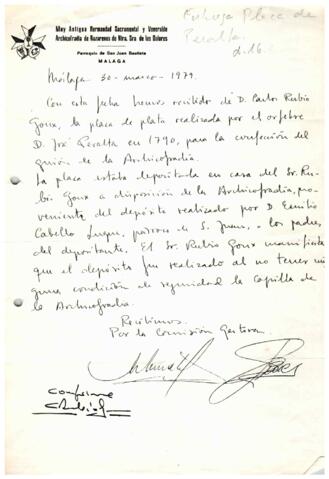 Muy Antigua Hermandad Sacramental y Venerable
Archicofradía de Nazarenos de Ntra. Sra. de los Dolores
Parroquia de San Juan Bautista
MALAGA
Entrega Placa de
Peralta.
Málaga 30-marzo-1979.
Con esta fecha hemos recibido de D. Carlos Rubio
Goux, la placa de plata realizada por el orfebre
D. José Peralta en 1790, para la confección del
guión de la Archicofradía.
La placa estaba depositada en casa del Sr. Ru-
bio Goux a disposición de la Archicofradía, pro-
veniente del depósito realizado por D. Emilio
Cabello Luque, párroco de S. Juan, a los padres
del depositante. El Sr. Rubio Goux manifiesta
que el depósito fue realizado al no tener nin-
guna condición de seguridad la Capilla de
la Archicofradía.
Recibimos.
Por la Comisión Gestora.
Conforme